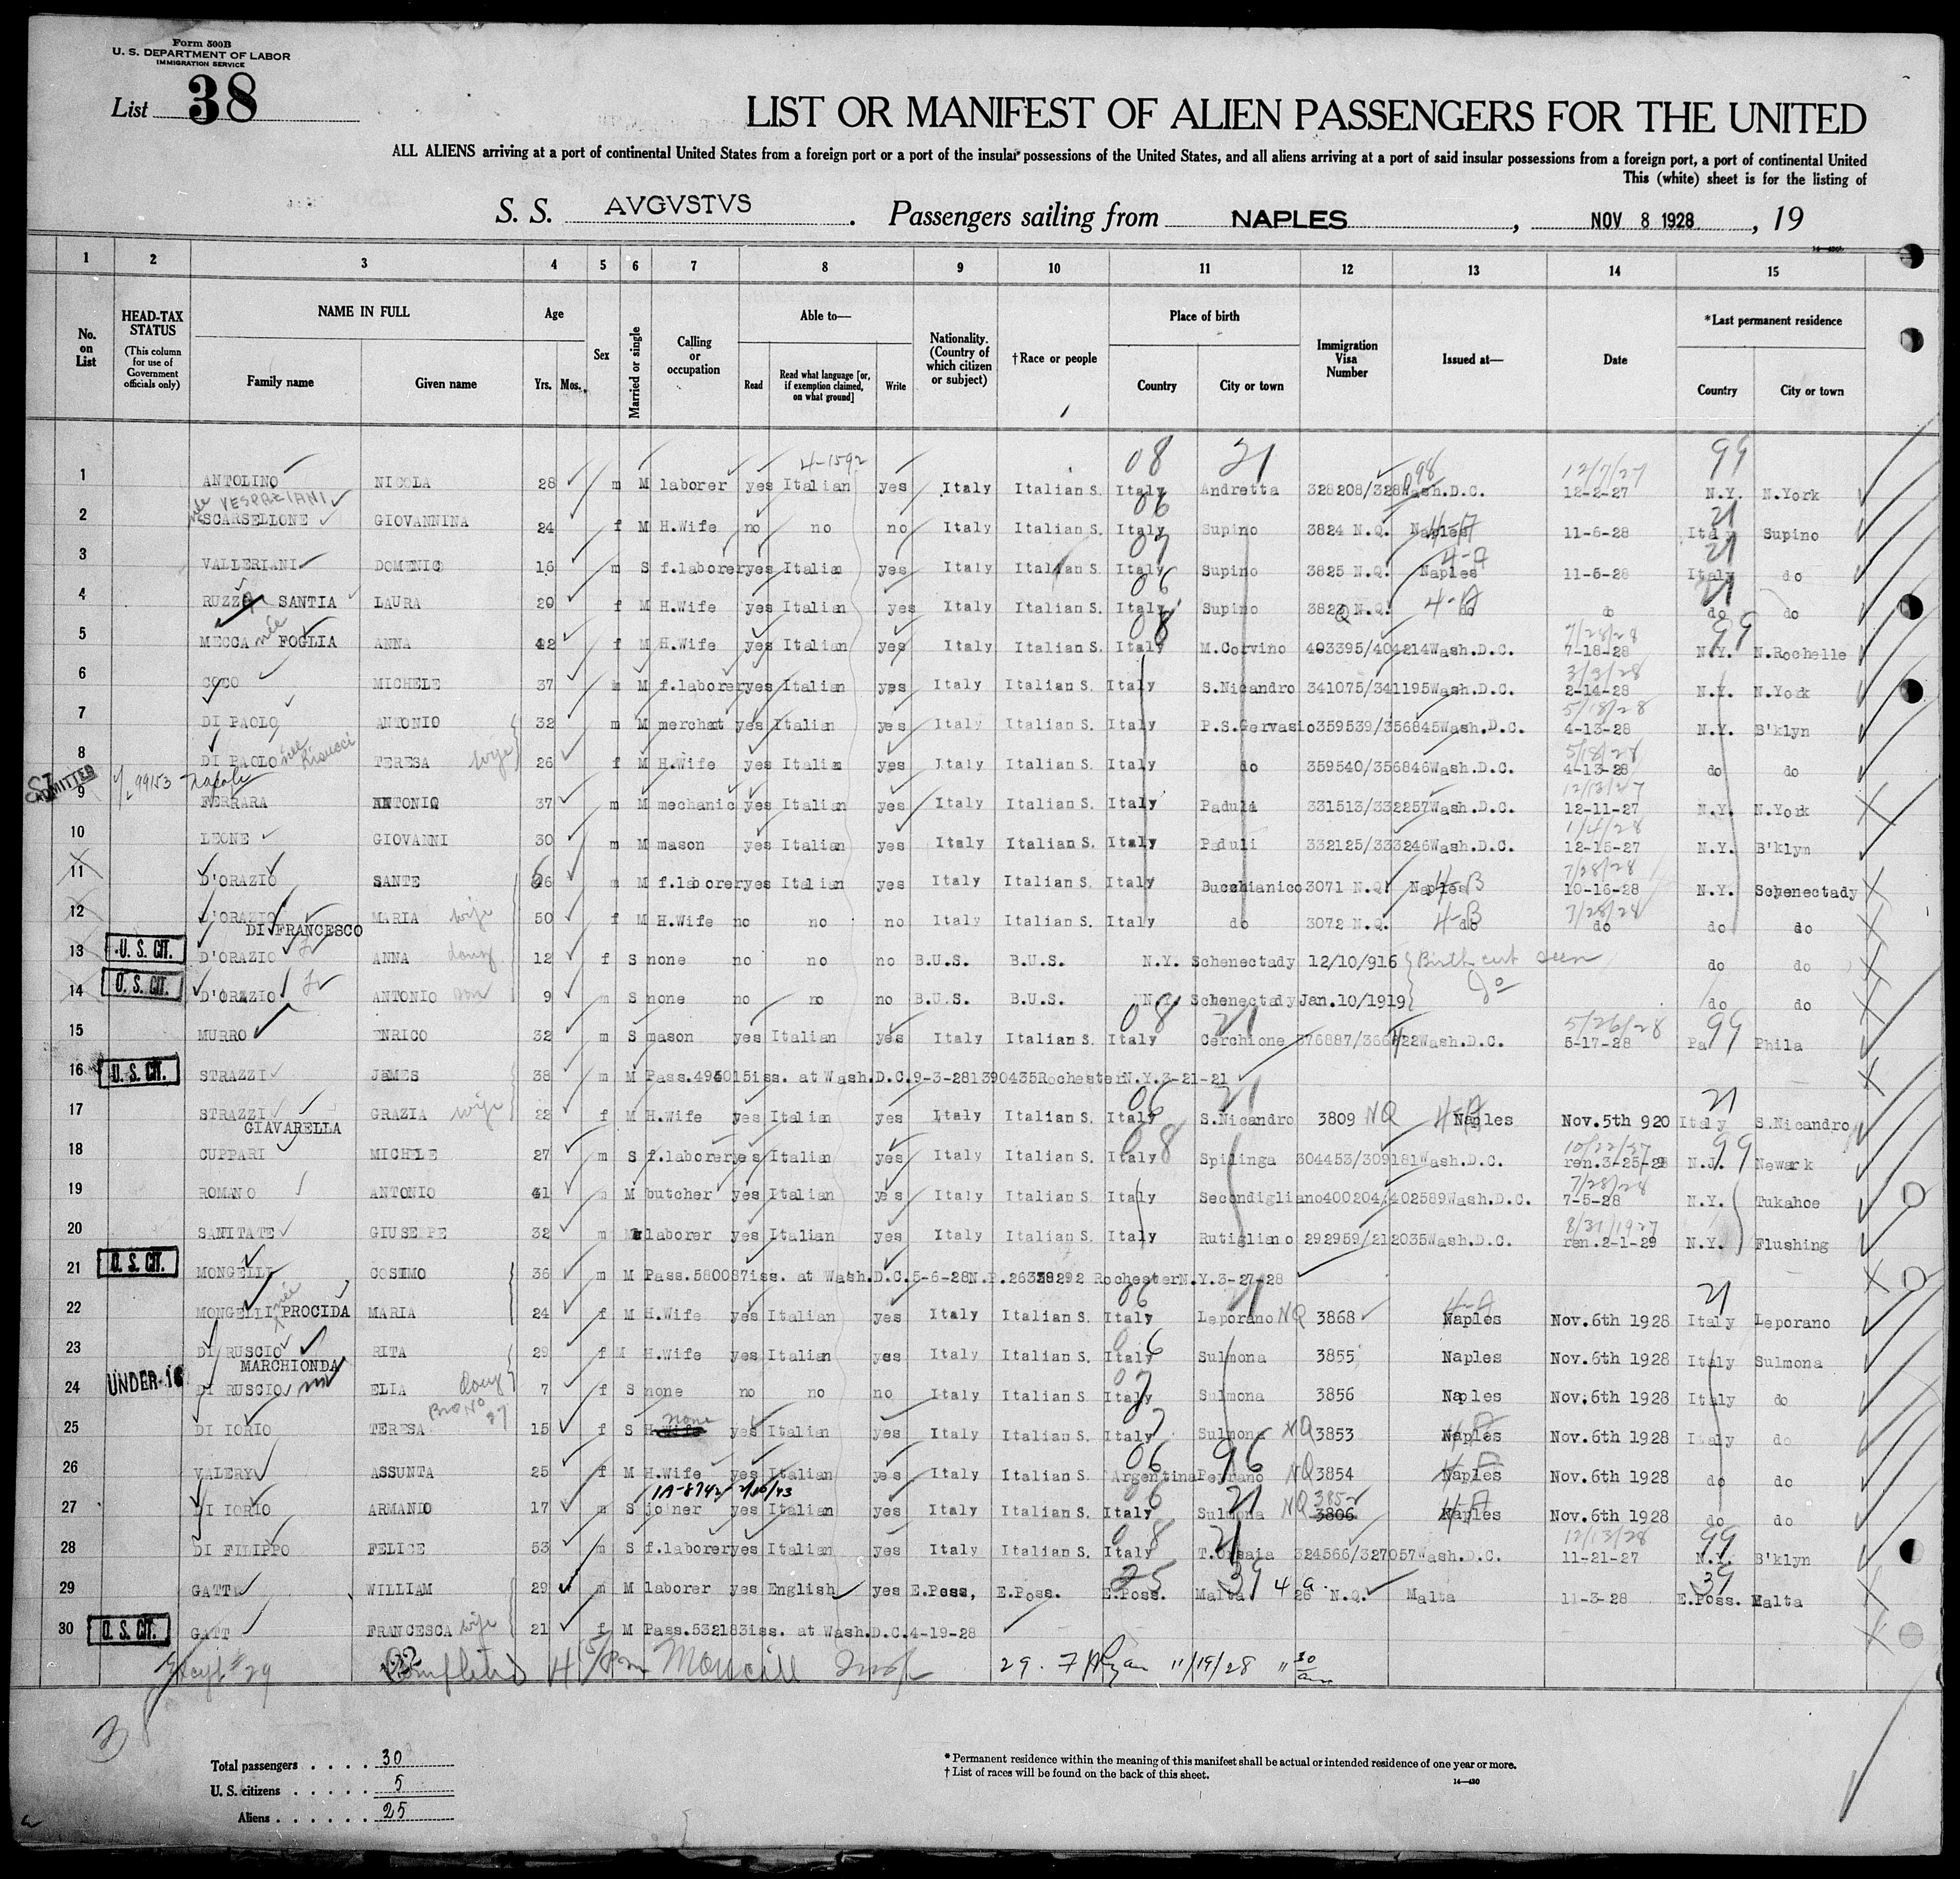 Form 500B
U. S. DEPARTMENT OF LABOR
IMMIGRATION SERVICE
List 38
LIST OR MANIFEST OF ALIEN PASSENGERS FOR THE UNITED
ALL ALIENS arriving at a port of continental United States from a foreign port or a port of the insular possessions of the United States, and all aliens arriving at a port of said insular possessions from a foreign port, a port of continental United
This (white) sheet is for the listing of
S. S. AVGVSTVS. Passengers sailing from NAPLES, NOV 8 1928, 19
1 2 3 4 5 6 7 8 9 10 11 12 13 14 15
No. on List
HEAD-TAX STATUS
(This column for use of Government officials only)
NAME IN FULL
Family name Given name
Age
Yrs. Mos.
Sex
Married or single
Calling or occupation
Able to—
Read
Read what language [or, if exemption claimed, on what ground]
Write
Nationality. (Country of which citizen or subject)
†Race or people
Place of birth
Country City or town
Immigration Visa Number
Issued at—
Date
*Last permanent residence
Country City or town
4-1592 08 21 98 12/7/27 99
1 ANTOLINO NICOLA 28 m M laborer yes Italian yes Italy Italian S. Italy Andretta 328208/328 Wash.D.C. 12-2-27 N.Y. N.York
nee VESPAZIANI 06 21
2 SCARSELLONE GIOVANNINA 24 f M H.Wife no no no Italy Italian S. Italy Supino 3824 N.Q. Naples 11-6-28 Italy Supino
07 21
3 VALLERIANI DOMENIC 16 m S f.laborer yes Italian yes Italy Italian S. Italy Supino 3825 N.Q. Naples 11-5-28 Italy do
06 21
4 RUZZA SANTIA LAURA 20 f M H.Wife yes Italian yes Italy Italian S. Italy Supino 3823 N.Q. do do do do
08 7/28/28 99
5 MECCA nee FOGLIA ANNA 42 f M H.Wife yes Italian yes Italy Italian S. Italy M.Corvino 403395/404214 Wash.D.C. 7-18-28 N.Y. N.Rochelle
3/3/28
6 COCO MICHELE 37 m M f.laborer yes Italian yes Italy Italian S. Italy S.Nicandro 341075/341195 Wash.D.C. 2-14-28 N.Y. N.York
5/18/28
7 DI PAOLO ANTONIO 32 m M merchant yes Italian yes Italy Italian S. Italy P.S.Gervasio 359539/356845 Wash.D.C. 4-13-28 N.Y. B'klyn
5/18/28
8 DI PAOLO nee TERESA wife 26 f M H.Wife yes Italian yes Italy Italian S. Italy do 359540/356846 Wash.D.C. 4-13-28 do do
SI ADMITTED 99153 Napoli 12/13/27
9 FERRARA ANTONIO 37 m M mechanic yes Italian yes Italy Italian S. Italy Paduli 331513/332257 Wash.D.C. 12-11-27 N.Y. N.York
1/4/28
10 LEONE GIOVANNI 30 m M mason yes Italian yes Italy Italian S. Italy Paduli 332125/333246 Wash.D.C. 12-15-27 N.Y. B'klyn
7/28/28
11 D'ORAZIO SANTE 56 m M f.laborer yes Italian yes Italy Italian S. Italy Bucchianico 3071 N.Q. Naples 10-16-28 N.Y. Schenectady
3/28/28
12 D'ORAZIO MARIA wife 50 f M H.Wife no no no Italy Italian S. Italy do 3072 N.Q. do do do do
DI FRANCESCO
13 U. S. CIT. D'ORAZIO ANNA daug 12 f S none no no no B.U.S. B.U.S. N.Y. Schenectady 12/10/916 Birth cert seen do do
14 U. S. CIT. D'ORAZIO ANTONIO son 9 m S none no no no B.U.S. B.U.S. N.Y. Schenectady Jan.10/1919 do do do
08 21 5/26/28 99
15 MURRO ENRICO 32 m S mason yes Italian yes Italy Italian S. Italy Cerchione Wash.D.C. 5-17-28 Pa Phila
16 U. S. CIT. STRAZZI JAMES 38 m M Pass.495015 iss. at Wash.D.C. 9-3-28 1390435 Rochester N.Y. 3-21-21
06 21 21
17 STRAZZI GRAZIA wife 22 f M H.Wife yes Italian yes Italy Italian S. Italy S.Nicandro 3809 NQ Naples Nov.5th 920 Italy S.Nicandro
GIAVARELLA
08 10/22/27 99
18 CUPPARI MICHELE 27 m S f.laborer yes Italian yes Italy Italian S. Italy Spilinga 304453/309181 Wash.D.C. ren.3-25-28 N.J. Newark
7/28/28
19 ROMANO ANTONIO 41 m M butcher yes Italian yes Italy Italian S. Italy Secondigliano 400204/402589 Wash.D.C. 7-5-28 N.Y. Tukahoe
8/31/1927
20 SANITATE GIUSEPPE 32 m M laborer yes Italian yes Italy Italian S. Italy Rutigliano 292959/212035 Wash.D.C. ren.2-1-29 N.Y. Flushing
21 U. S. CIT. MONGELLI COSIMO 36 m M Pass.580087 iss. at Wash.D.C. 5-6-28 N.P. Rochester N.Y. 3-27-28
06 21 4-A 21
22 MONGELLI nee PROCIDA MARIA 24 f M H.Wife yes Italian yes Italy Italian S. Italy Leporano NQ 3868 Naples Nov.6th 1928 Italy Leporano
06
23 DI RUSCIO RITA 29 f M H.Wife yes Italian yes Italy Italian S. Italy Sulmona 3855 Naples Nov.6th 1928 Italy Sulmona
MARCHIONDA 07
24 UNDER-16 DI RUSCIO ELIA daug 7 f S none no no no Italy Italian S. Italy Sulmona 3856 Naples Nov.6th 1928 Italy do
none 7
25 DI IORIO TERESA 15 f S H.Wife yes Italian yes Italy Italian S. Italy Sulmona NQ 3853 Naples Nov.6th 1928 Italy do
06 96
26 VALERY ASSUNTA 25 f M H.Wife yes Italian yes Italy Italian S. Argentina Perrano NQ 3854 Naples Nov.6th 1928 do do
1A-8742 21 3852
27 DI IORIO ARMANDO 17 m S joiner yes Italian yes Italy Italian S. Italy Sulmona NQ 3806 Naples Nov.6th 1928 do do
08 21 12/13/28 99
28 DI FILIPPO FELICE 53 m S f.laborer yes Italian yes Italy Italian S. Italy 324566/327057 Wash.D.C. 11-21-27 N.Y. B'klyn
25 39 39
29 GATT WILLIAM 29 m M laborer yes English yes E.Poss, E.Poss. E.Poss. Malta 26 N.Q. Malta 11-3-28 E.Poss. Malta
30 U. S. CIT. GATT FRANCESCA wife 21 f M Pass.532183 iss. at Wash.D.C. 4-19-28
Except #29 Completed 29. Ryan 11/19/28 11 30 am
38
Total passengers . . . . 30
U. S. citizens . . . . . 5
Aliens . . . . . . 25
* Permanent residence within the meaning of this manifest shall be actual or intended residence of one year or more.
† List of races will be found on the back of this sheet.
14—430